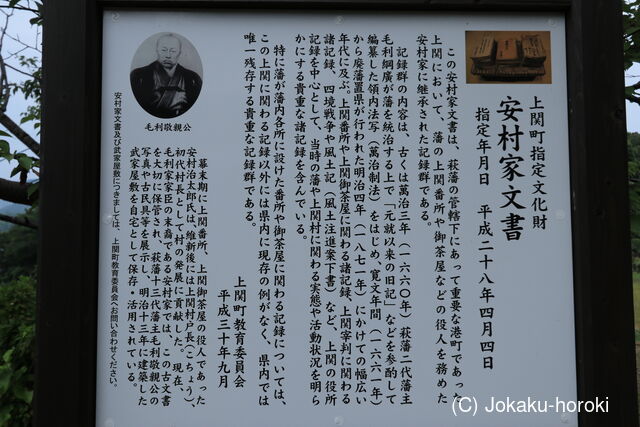 上関町指定文化財
安村家文書
指定年月日　平成二十八年四月四日
この安村家文書は、萩藩の管轄下にあって重要な港町であった
上関において、藩の上関番所や御茶屋などの役人を務めた
安村家に継承された記録群である。
記録群の内容は、古くは萬治三年（一六六〇年）萩藩二代藩主
毛利綱廣が藩を統治する上で「元就以来の旧記」などを参酌して
編纂した領内法写（萬治制法）をはじめ、寛文年間（一六六一年）
から廃藩置県が行われた明治四年（一八七一年）にかけての幅広い
年代に及ぶ。上関番所や上関御茶屋に関わる諸記録、上関宰判に関わる
諸記録、四境戦争や風土記（風土注進案下書）など、上関の役所
記録を中心として、当時の藩や上関村に関わる実態や活動状況を明ら
かにする貴重な諸記録を含んでいる。
特に藩が藩内各所に設けた番所や御茶屋に関わる記録については、
この上関に関わる記録以外には県内に現存の例がなく、県内では
唯一残存する貴重な記録群である。
上関町教育委員会
平成三十年九月
毛利敬親公
幕末期に上関番所、上関御茶屋の役人であった
安村治太郎氏は、維新後には上関村戸長（こちょう）、
初代村長として村の発展に貢献した。現在、
毛利家家臣の末裔である安村家では、この古文書
を大切に保管され、萩藩十三代藩主毛利敬親公の
写真や古民具等を展示し、明治十三年に建築した
武家屋敷を自宅として保存・活用されている。
安村家文書及び武家屋敷につきましては、上関町教育委員会へお問い合わせください。
(C) Jokaku-horoki